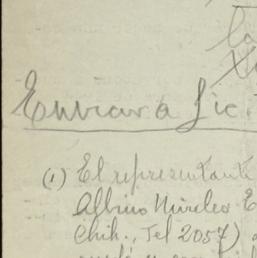 la
Enviar a Lic.
(1) El representante
Albino Mireles E
Chih., Tel 2057)